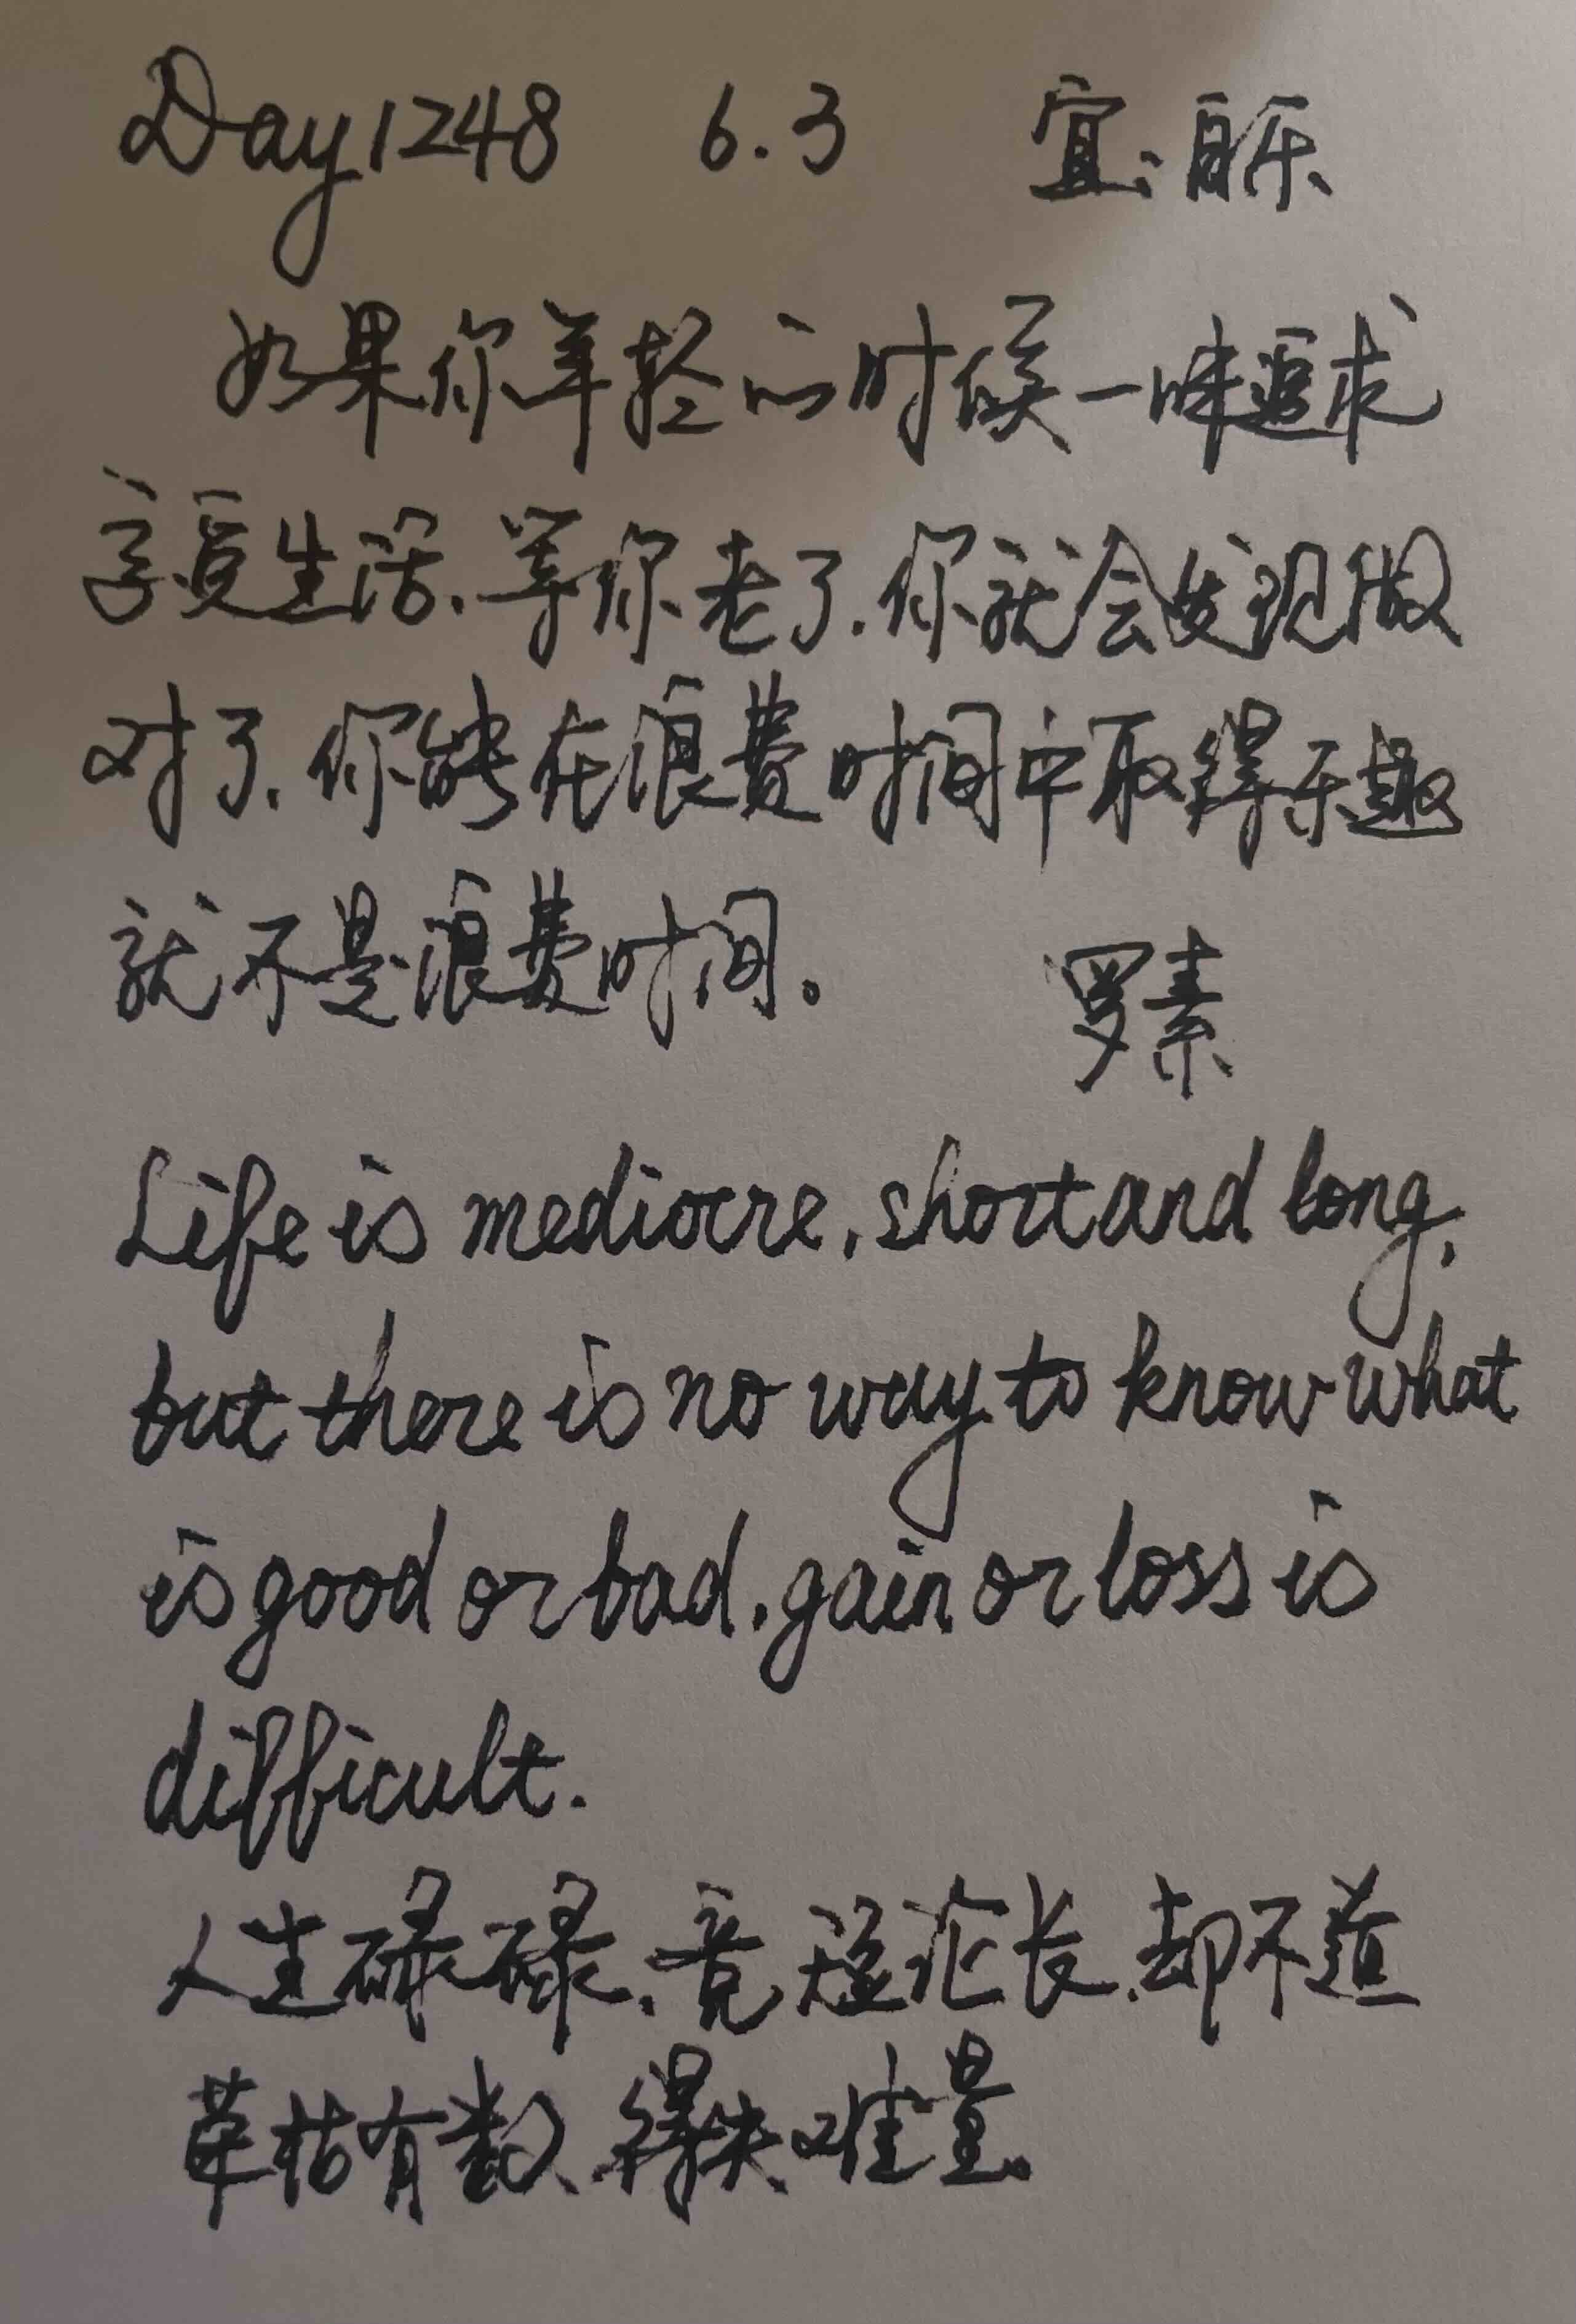 Day1248 6.3 宜:自乐
如果你年轻的时候一味追求
享受生活,等你老了,你就会发现做
对了,你能在浪费时间中取得乐趣
就不是浪费时间。
罗素
Life is mediocre, short and long,
but there is no way to know what
is good or bad, gain or loss is
difficult.
人生碌碌,竞短论长,却不道
荣枯有数,得失难量。